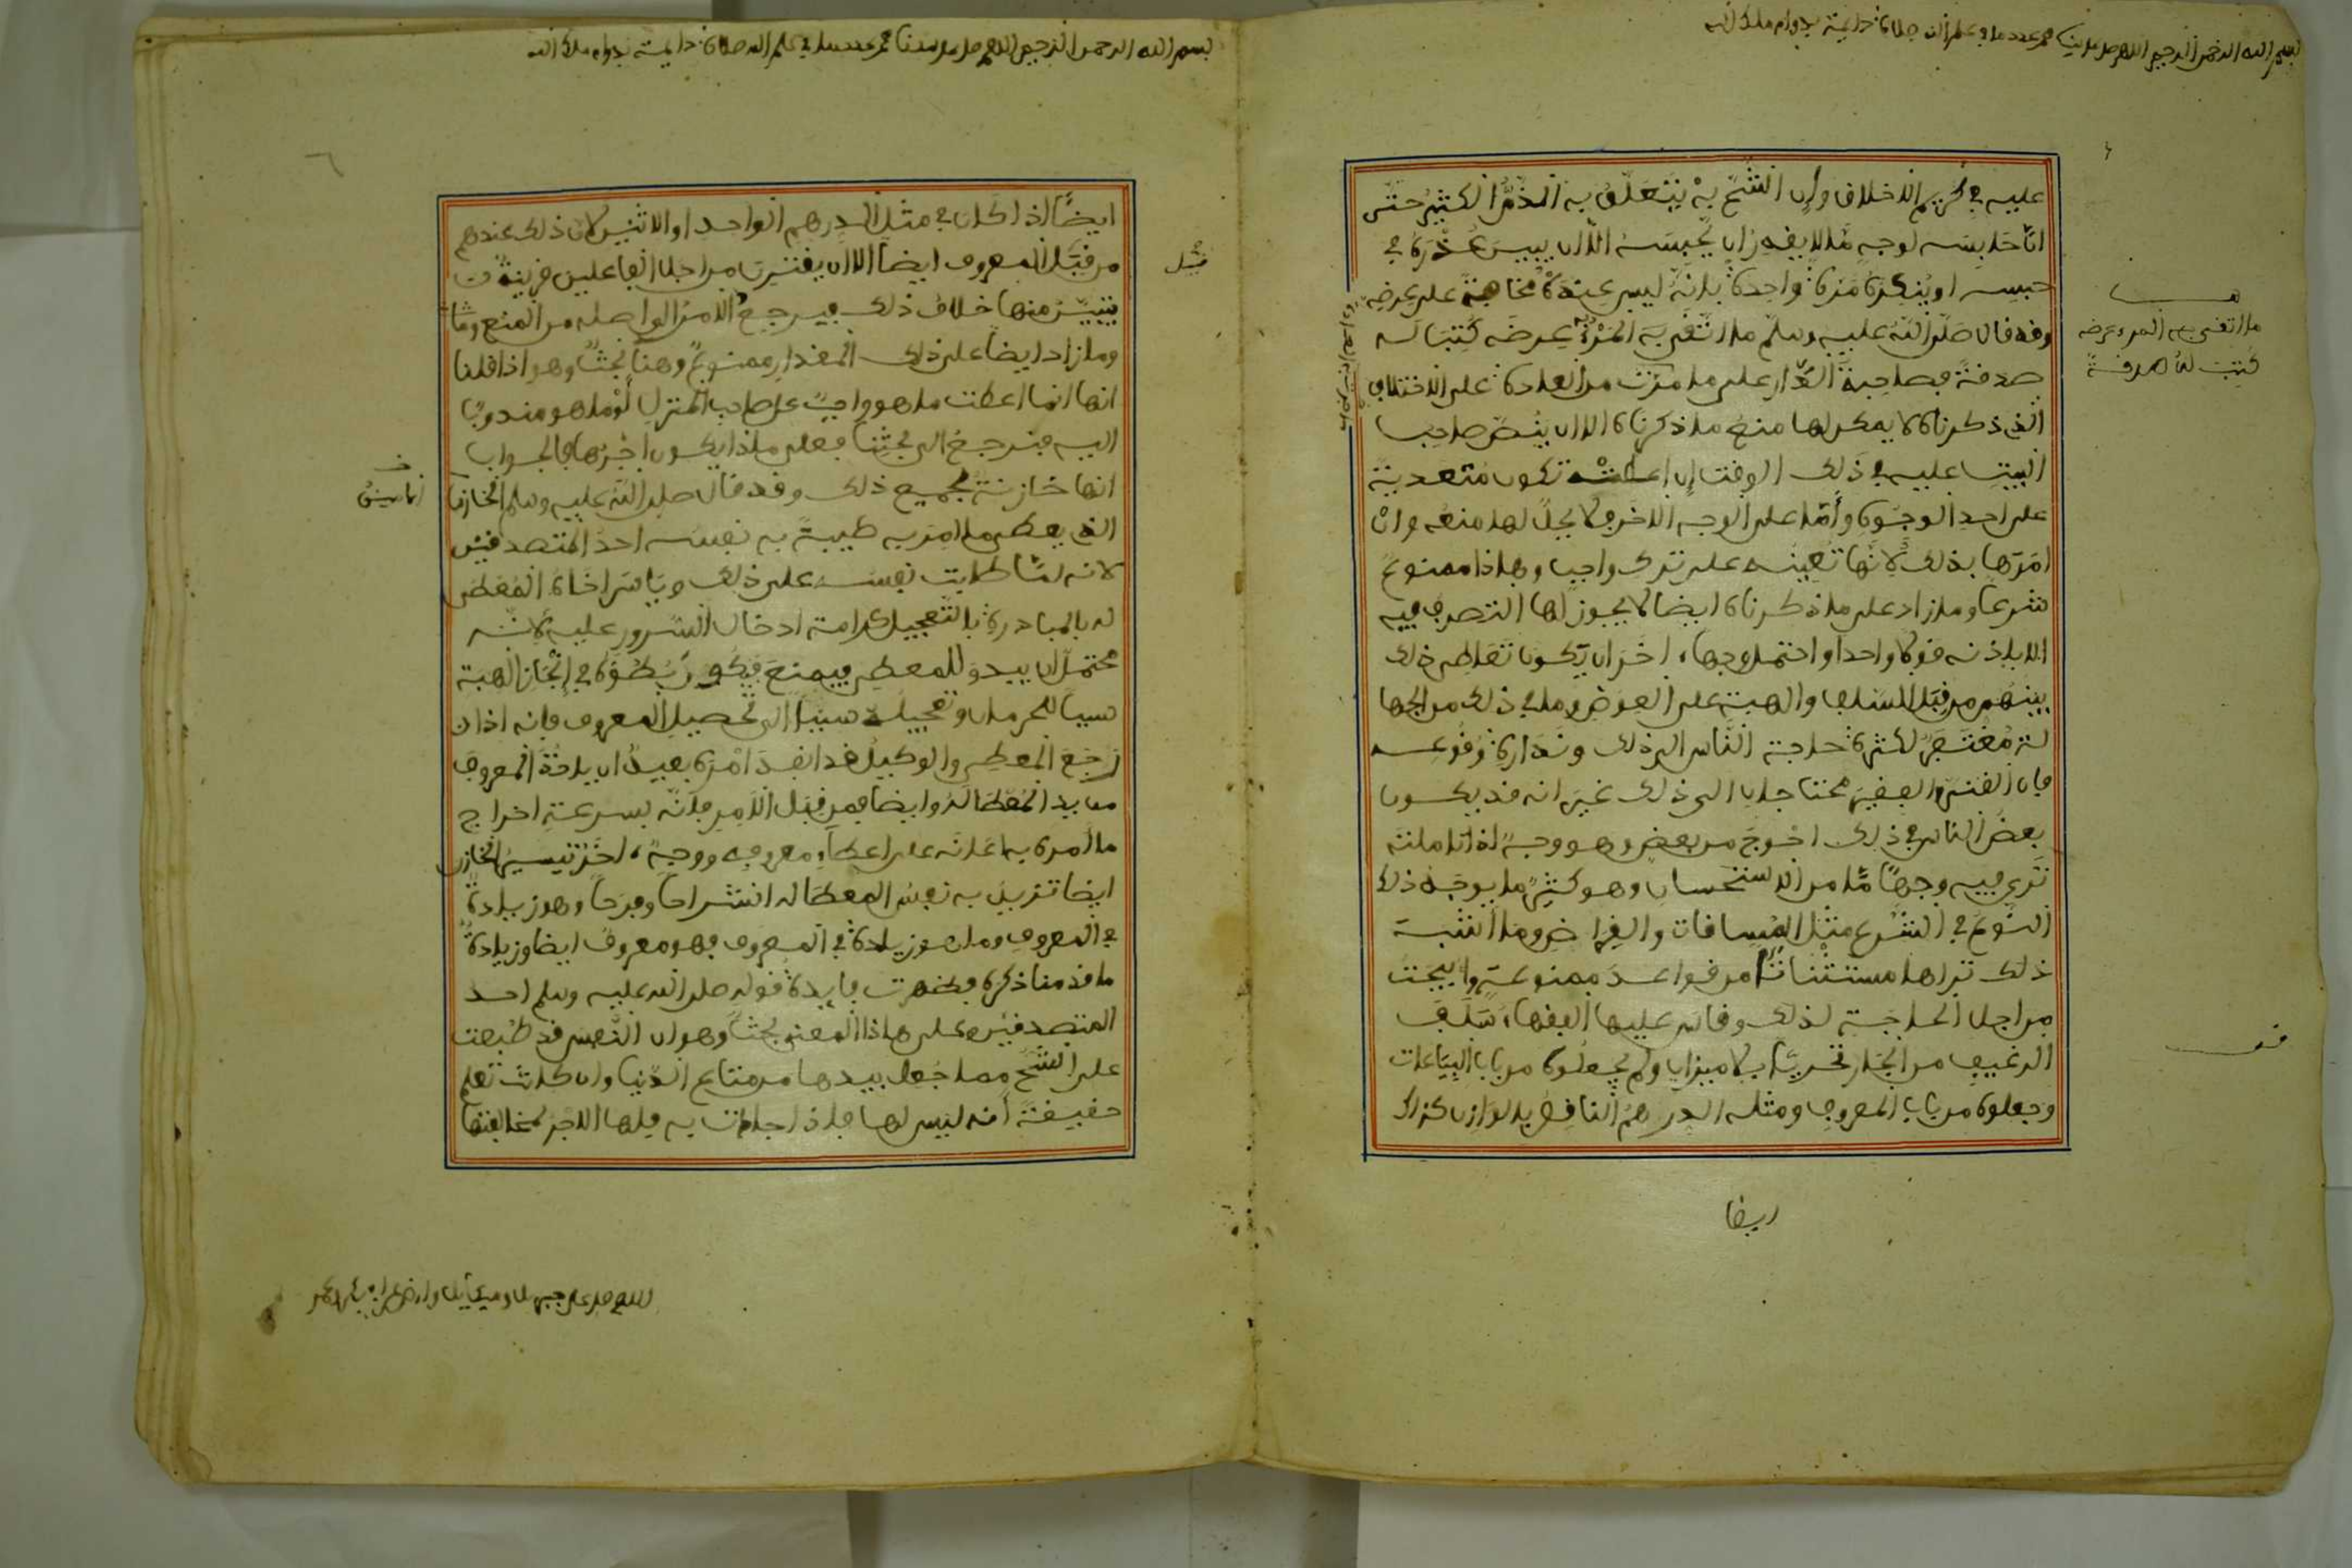 بسم الله الرحمن الرحيم اللهم صل على سيدنا محمد عدد ما في علم الله صلاة دايمة بدوام ملك الله
عليه في كريم الاخلاق وان الشح به يتعلق به الذم الكثير حتى
ان حابسه لوجه ما لا يقدر ان يحبسه الا ان يبين عذره في
حبسه او ينكره مرة واحدة بانه ليس عنده مخافة على عرضه
وقد قال صلى الله عليه وسلم ما اتقى به المرء عرضه كتب له
صدقة فصاحبة الدار على ما مرت من العادة على الاختلاف
الذي ذكرناه لا يمكن لها منع ما ذكرناه الا ان ينص صاحب
البيت عليه في ذلك الوقت ان اعطته تكون متعدية
على احد الوجوه واما على الوجه الاخر فلا يحل لها منعه وان
امرها بذلك لانها تعينه على ترك واجب وهاذا ممنوع
شرعا وما زاد على ما ذكرناه ايضا لا يجوز لها التصرف فيه
الا باذنه قولا واحدا واحتمل وجها اخر ان يكون تعاطي ذلك
بينهم من قبل السلف والهبة على العوض وما في ذلك من الجها
لة مغتفر لكثرة حاجة الناس الى ذلك وندارة وقوعه
فان الغني والفقير محتاجان الى ذلك غير انه قد يكون
بعض الناس في ذلك احوج من بعض وهو وجه اذا تاملته
ترى فيه وجها ما من الاستحسان وهو كثير ما يوجد ذلك
النوع في الشرع مثل المساقات والقراض وما اشبه
ذلك تراها مستثناة من قواعد ممنوعة وابيحت
من اجل الحاجة لذلك وقاس عليها الفقهاء سلف
الرغيف من الجار تحريا بلا ميزان ولم يجعلوه من باب البياعات
وجعلوه من باب المعروف ومثله الدرهم الناقص بالوازن كذلك
ما اتقى به المرء عرضه
كتبت له صدقة
ايضا
بسم الله الرحمن الرحيم اللهم صل على سيدنا محمد عدد ما في علم الله صلاة دايمة بدوام ملك الله
ايضا اذا كان في مثل الدرهم الواحد او الاثنين لان ذلك عندهم
من قبيل المعروف ايضا الا ان يقترن من اجل الفاعلين قرينة
يتبين منها خلاف ذلك فيرجع الامر الى اصله من المنع
وما زاد ايضا على ذلك المقدار ممنوع وهنا بحث وهو اذا قلنا
انها انما اعطت ما هو واجب على صاحب المنزل او ما هو مندوب
اليه فنرجع الى بحثنا فعلى ماذا يكون اجرها فالجواب
انها خازنة لجميع ذلك وقد قال صلى الله عليه وسلم الخازن
الذي يعطي ما امر به طيبة به نفسه احد المتصدقين
لانه لما طابت نفسه على ذلك وياسر اخاه المعطى
له بالمبادرة بالتعجيل كرامة ادخال السرور عليه لانه
محتمل ان يبدو للمعطي فيمنع فيكون بطؤه في انجاز الهبة
سببا للحرمان وتعجيله سببا الى تحصيل المعروف فانه اذا
رجع المعطي والوكيل قد انفذ امره بعيد ان ياخذ المعروف
من يد المعطى له وايضا فمن قبل الامر فانه بسرعة اخراج
ما امره به اعانه على اعطاء معروفه ووجه اخر تيسير الخازن
ايضا تزيد به نفس المعطى له انشراحا وفرحا وهو زيادة
في المعروف وما هو زيادة في المعروف فهو معروف ايضا وزيادة
ما قدمنا ذكره فظهرت فايدة قوله صلى الله عليه وسلم احد
المتصدقين وعلى هاذا المعنى بحث وهو ان النفس قد طبعت
على الشح مما جعل بيدها من متاع الدنيا وان كانت تعلم
حقيقة انه ليس لها فاذا جادت به فلها الاجر لمخالفتها
قبل
الامين